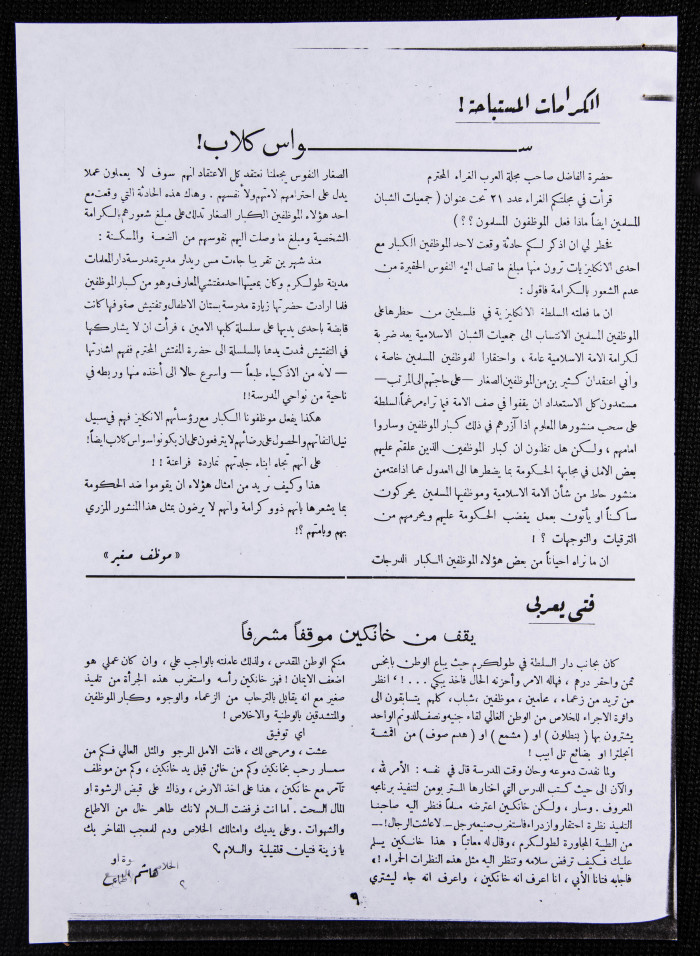 الكرامات المستباحة!
ســـــــــواس كلاب!
حضرة الفاضل صاحب مجلة العرب الغراء المحترم
قرأت في مجلتكم الغراء عدد ٢١ تحت عنوان ( جمعيات الشبان
المسلمين ايضاً ماذا فعل الموظفون المسلمون ؟ ؟ )
فخطر لي ان اذكر لكم حادثة وقعت لاحد الموظفين الكبار مع
احدى الانكليزيات ترون منها مبلغ ما تصل اليه النفوس الحقيرة من
عدم الشعور بالكرامة فاقول :
ان ما فعلته السلطة الانكليزية في فلسطين من حظرها على
الموظفين المسلمين الانتساب الى جمعيات الشبان الاسلامية يعد ضربة
لكرامة الامة الاسلامية عامة ، واحتقارا للموظفين المسلمين خاصة ،
واني اعتقد ان كثيرين من الموظفين الصغار — على حاجتهم الى المرتب —
مستعدون كل الاستعداد ان يقفوا في صف الامة فيما تراه مرغماً لسلطة
على سحب منشورها المعلوم اذا آزرهم في ذلك كبار الموظفين وساروا
امامهم ، ولكن هل تظنون ان كبار الموظفين الذين علقتم عليهم
بعض الامل في مجابهة الحكومة بما يضطرها الى العدول عما اذاعته من
منشور حاط من شأن الامة الاسلامية وموظفيها المسلمين يحركون
ساكناً او يأتون بعمل يغضب الحكومة عليهم ويحرمهم من
الترقيات والتوجهات ؟ !
ان ما نراه احياناً من بعض هؤلاء الموظفين الكبار الدرجات
الصغار النفوس يجعلنا نعتقد كل الاعتقاد انهم سوف لا يعملون عملا
يدل على احترامهم لامتهم ولا نفسهم . وهاك هذه الحادثة التي وقعت مع
احد هؤلاء الموظفين الكبار الصغار تدلك على مبلغ شعورهم بالكرامة
الشخصية ومبلغ ما وصلت اليهم نفوسهم من الضعة والمسكنة :
منذ شهرين تقريبا جاءت مس ريدلر مديرة مدرسة دار المعلمات
مدينة طولكرم وكان بمعيتها احد مفتشي المعارف وهو من كبار الموظفين
فلما ارادت حضرتها زيارة مدرسة بستان الاطفال وتفتيش صفوفها كانت
قابضة باحدى يديها على سلسلة كلبها الامين ، فرأت ان لا يشاركها
في التفتيش فمدت يدها بالسلسلة الى حضرة المفتش المحترم ففهم اشارتها
— لأنه من الاذكياء طبعاً — واسرع حالا الى أخذه منها وربطه في
ناحية من نواحي المدرسة !!
هكذا يفعل موظفونا الكبار مع رؤسائهم الانكليز فهم في سبيل
نيل التفاتهم والحصول على رضائهم لا يترفعون على ان يكونوا سواس كلاب ايضاً!
على انهم تجاه ابناء جلدتهم نماردة فراعنة ! !
هذا وكيف تريد من امثال هؤلاء ان يقوموا ضد الحكومة
بما يشعرها بانهم ذوو كرامة وانهم لا يرضون بمثل هذا المنشور المزري
بهم وبامتهم ؟!
«موظف صغير»
فتى يعربي
يقف من خانكين موقفاً مشرفاً
كان بجانب دار السلطة في طولكرم حيث يباع الوطن بابخس
ثمن واحقر درهم ، فهاله الامر وأحزنه الحال فاخذ يبكي . . . ! ، انظر
من تريد من زعماء ، محامين ، موظفين ، شباب ، كلهم يتسابقون الى
دائرة الاجراء للخلاص من الوطن الغالي لقاء جنيه ونصف للدونم الواحد
يشترون بها ( بنطلون ) او ( مشمع ) او ( هدم صوف ) من اقمشة
انجلترا او بضائع تل ابيب !
ولما نفدت دموعه وحان وقت المدرسة قال في نفسه : الأمر لله ،
والآن الى حيث كتب الدرس التي اختارها المستر بومن لتنفيذ برنامجه
المعروف . وسار ، ولكن خانكين اعترضه مسلماً فنظر اليه صاحبنا
التلميذ نظرة احتقار وازدراء فاستغرب صنيعه رجل — لا عاشت الرجال! —
من الطيبة المجاورة لطولكرم ، وقال له معاتباً « هذا خانكين يسلم
عليك فكيف ترفض سلامه وتنظر اليه مثل هذه النظرات الحمراء ! »
فاجابه فتانا الأبي ، انا اعرف انه خانكين ، واعرف انه جاء ليشتري
منكم الوطن المقدس ، ولذلك عاملته بالواجب علي ، وان كان عملي هو
اضعف الايمان ! فهز خانكين رأسه واستغرب هذه الجرأة من تلميذ
صغير مع انه يقابل بالترحاب من الزعماء والوجوه وكبار الموظفين
والمتشدقين بالوطنية والاخلاص !
اي توفيق
عشت ، ومرحى لك ، فانت الامل المرجو والمثل العالي فكم من
سمسار رحب بخانكين وكم من خائن قبل يد خانكين ، وكم من موظف
تآمر مع خانكين ، هذا على اخذ الارض ، وذاك على قبض الرشوة او
المال السحت . أما انت فرفضت السلام لانك طاهر خال من الاطماع
والشهوات . وعلى يديك وامثالك الخلاص ودم للمعجب المفاخر بك
يا زينة فتيان قلقيلية والسلام ؟
هاشم
٩